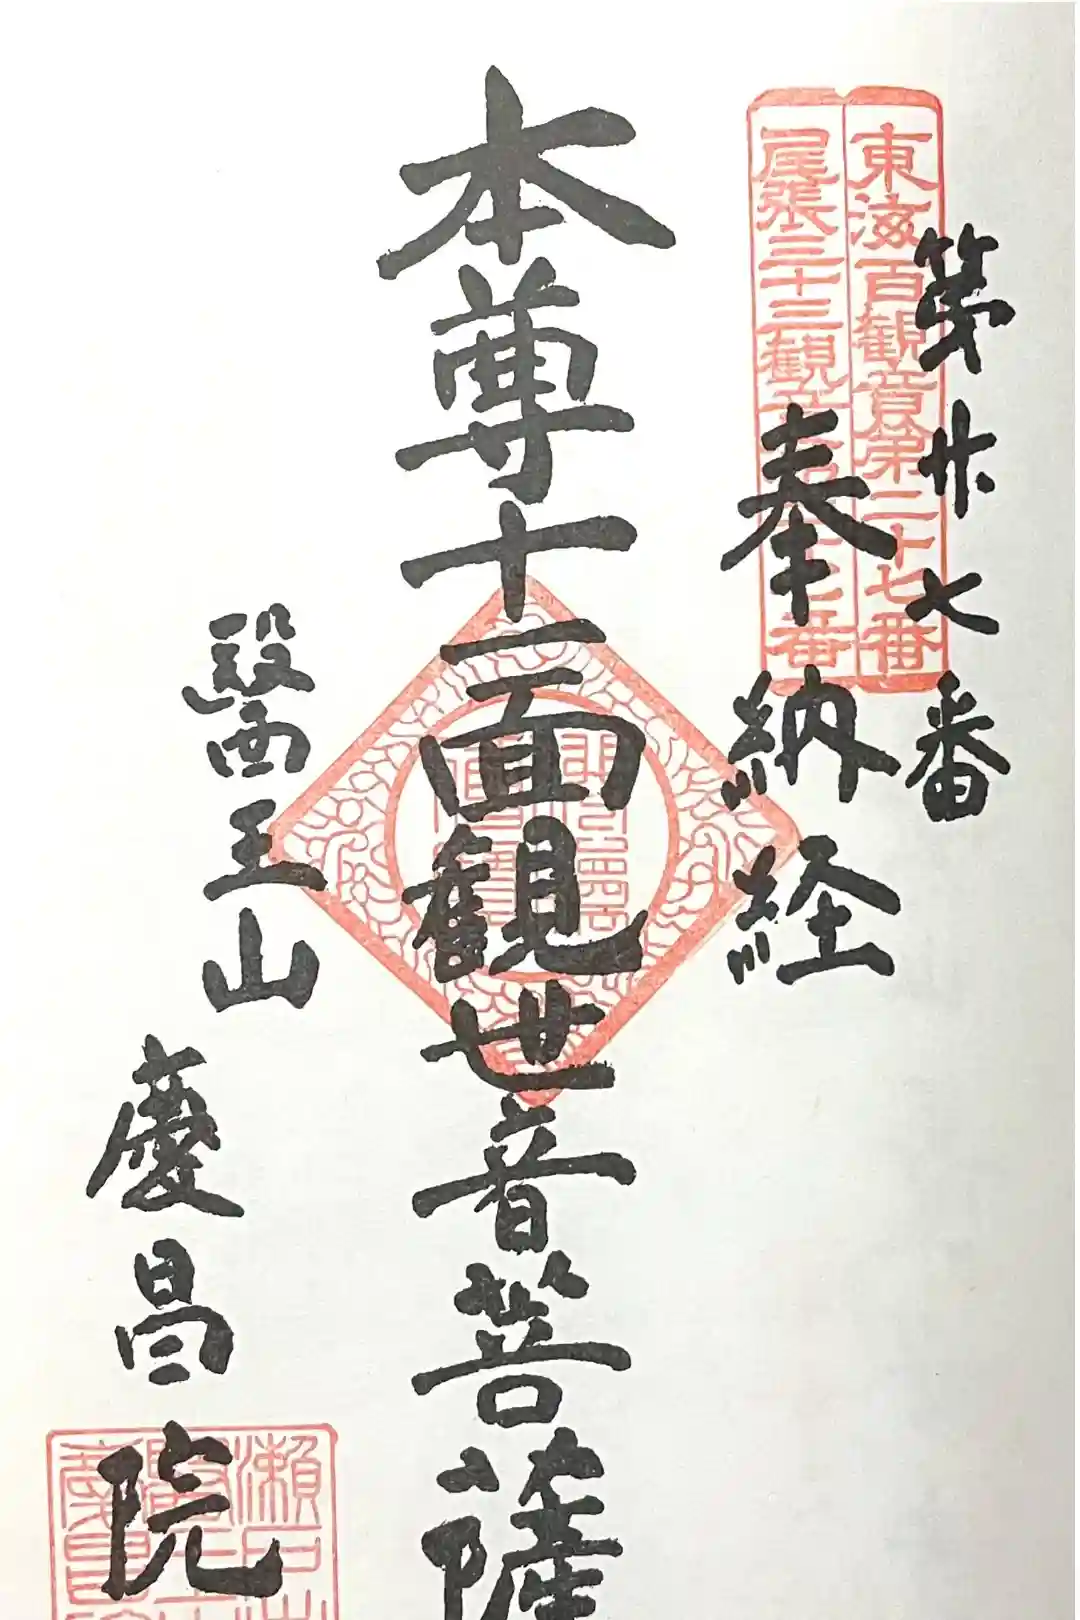 第廿七番
東海百観音第二十七番
尾張三十三観音第二十七番
奉納経
本尊十一面観世音菩薩
醫王山
慶昌院